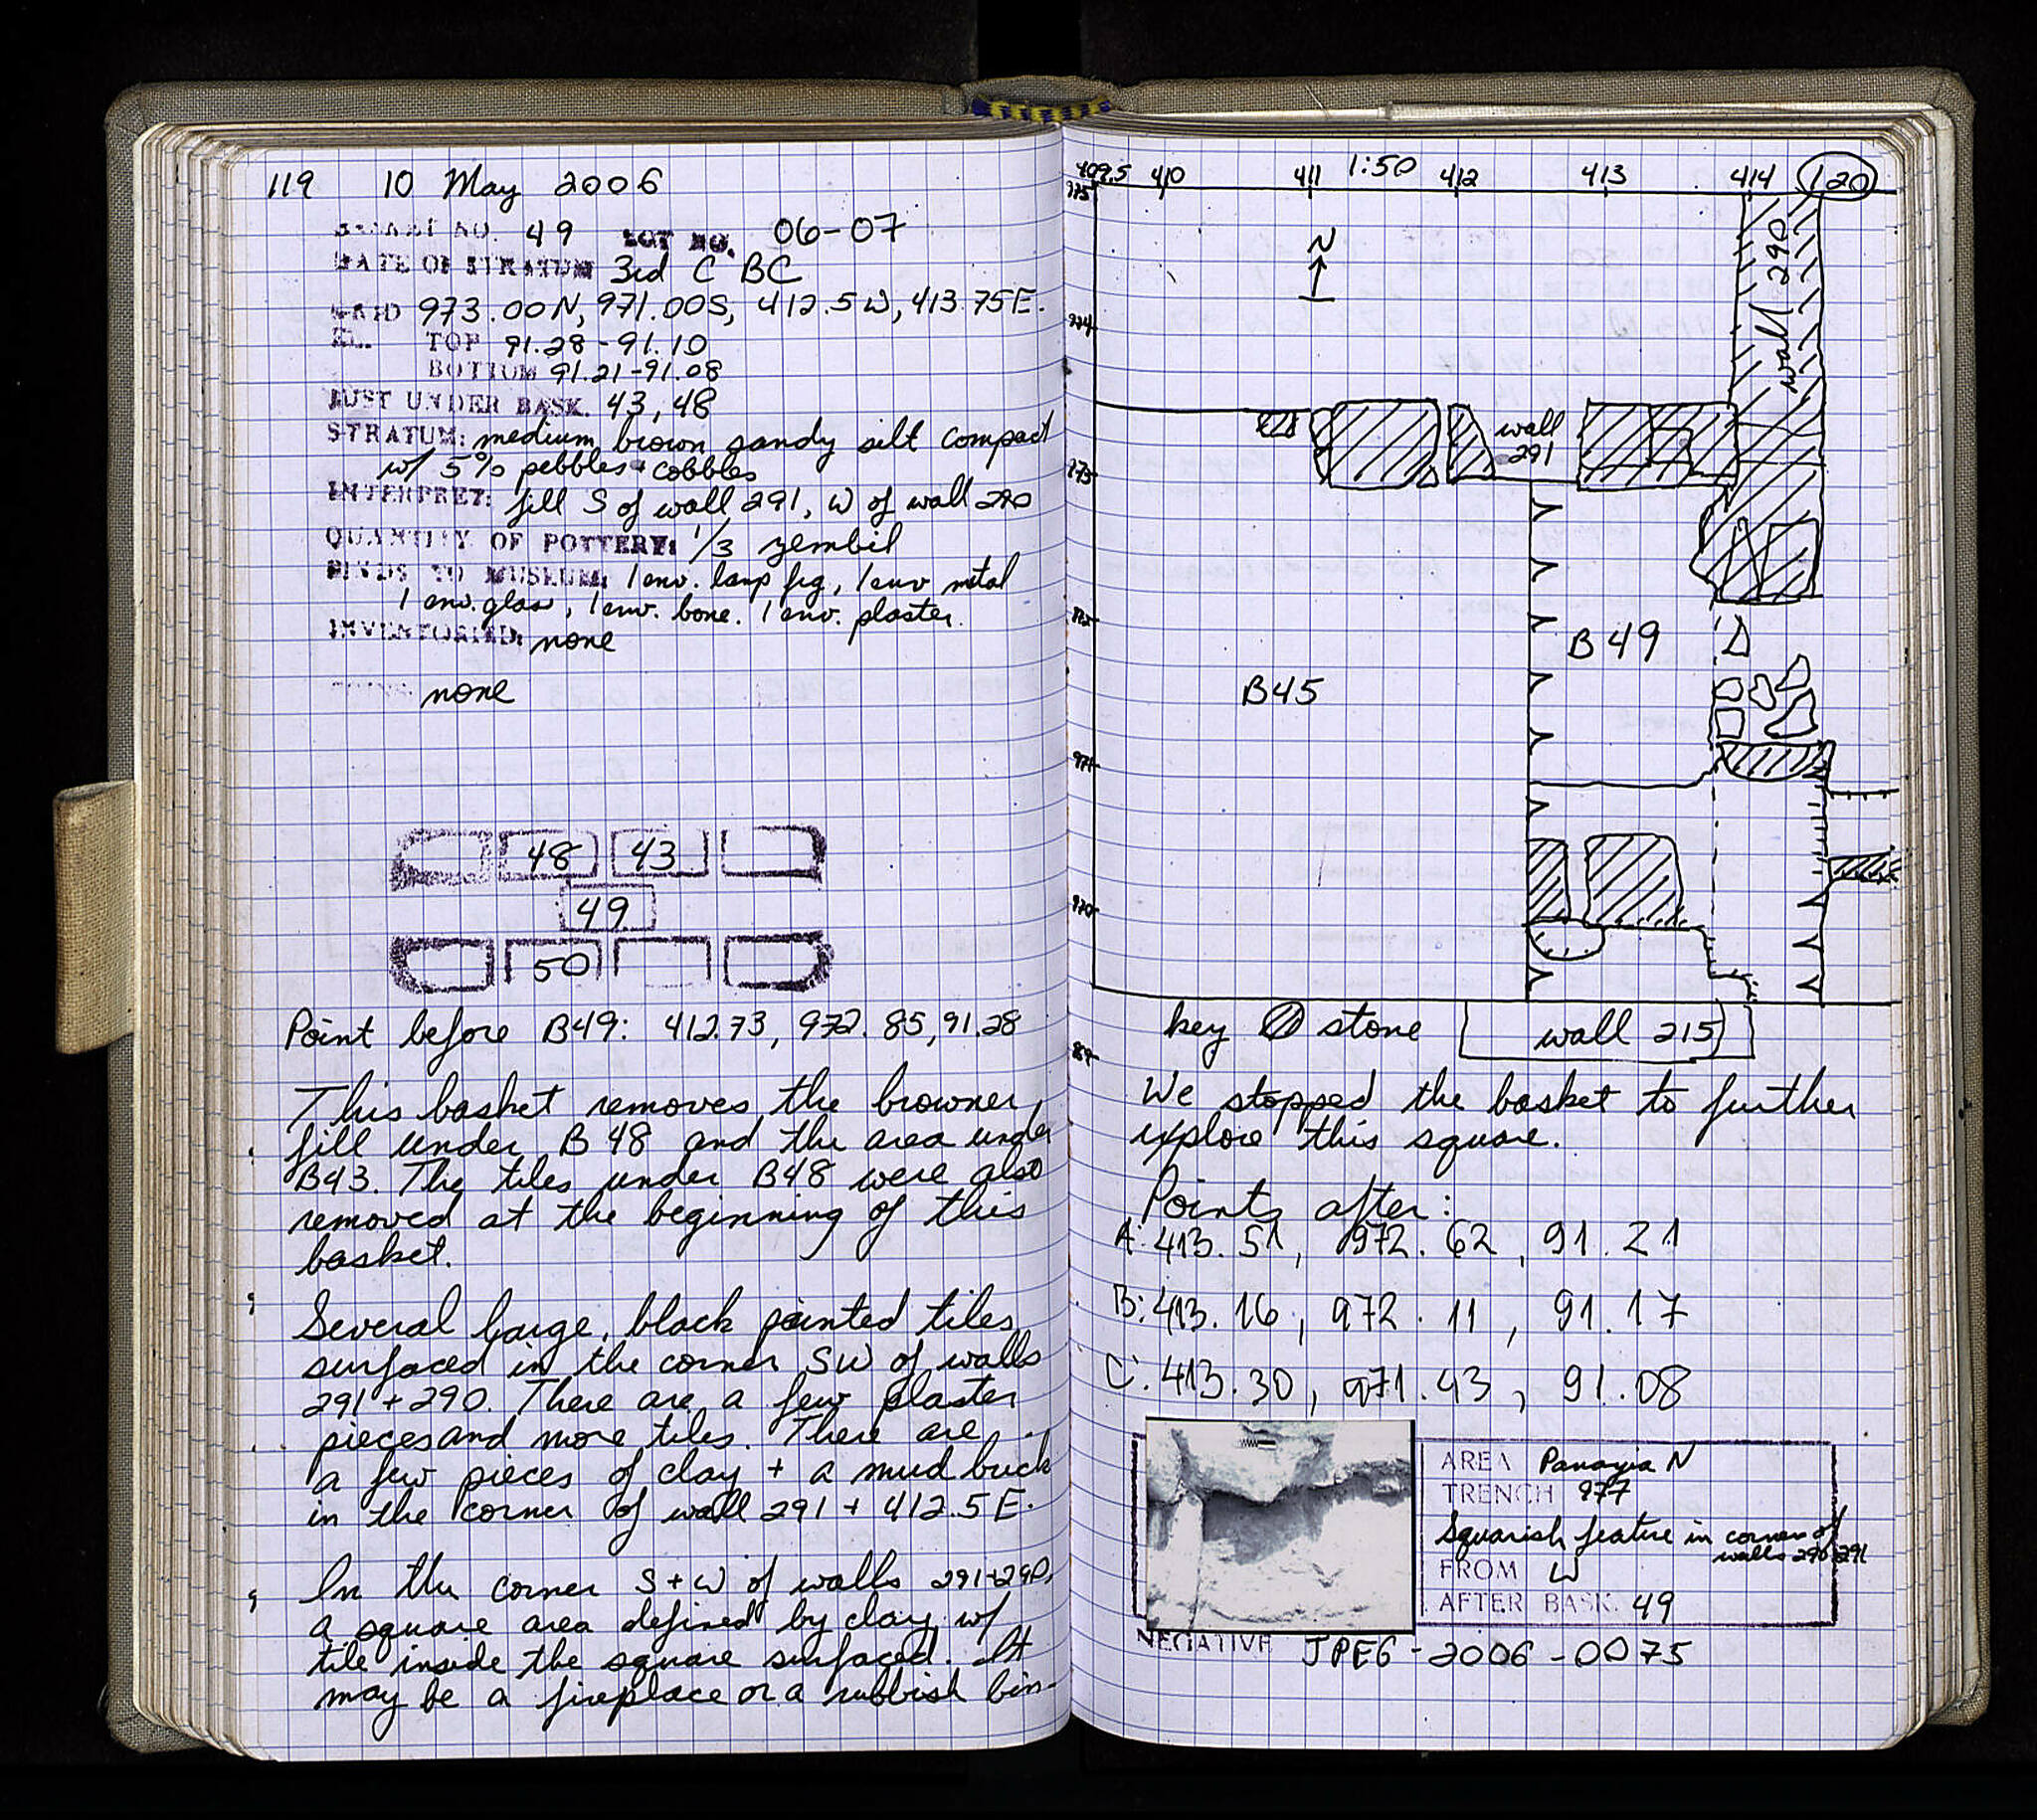 119 10 May 2006
BASKET NO. 49 LOT NO. 06-07
DATE OF STRATUM 3rd C BC
GRID 973.00N, 971.00S, 412.5W, 413.75E.
EL. TOP 91.28-91.10
BOTTOM 91.21-91.08
JUST UNDER BASK. 43, 48
STRATUM: medium brown sandy silt compact
w/ 5% pebbles + cobbles
INTERPRET: fill S of wall 291, W of wall 290
QUANTITY OF POTTERY: 1/3 zembil
FINDS TO MUSEUM: 1 env. lamp frg, 1 env metal
1 env. glass, 1 env. bone. 1 env. plaster.
INVENTORIED: none
none
48 43
49
50
Point before B49: 412.73, 972.85, 91.28
This basket removes the browner
fill under B48 and the area under
B43. The tiles under B48 were also
removed at the beginning of this
basket.
Several large, black painted tiles
surfaced in the corner SW of walls
291 + 290. There are a few plaster
pieces and more tiles. There are
a few pieces of clay + a mud brick
in the corner of wall 291 + 412.5 E.
In the corner S + W of walls 291+290,
a square area defined by clay w/
tile inside the square surfaced. It
may be a fireplace or a rubbish bin-
409.5 410 411 1:50 412 413 414 120
975
N
wall 290
974
wall
291
973
972
B49
B45
971
970
key stone wall 215
We stopped the basket to further
explore this square.
Points after:
A: 413.51, 972.62, 91.21
B: 413.16, 972.11, 91.17
C: 413.30, 971.43, 91.08
AREA Panayia N
TRENCH 977
Squarish feature in corner of
walls 290, 291
FROM W
AFTER BASK. 49
NEGATIVE JPEG-2006-0075